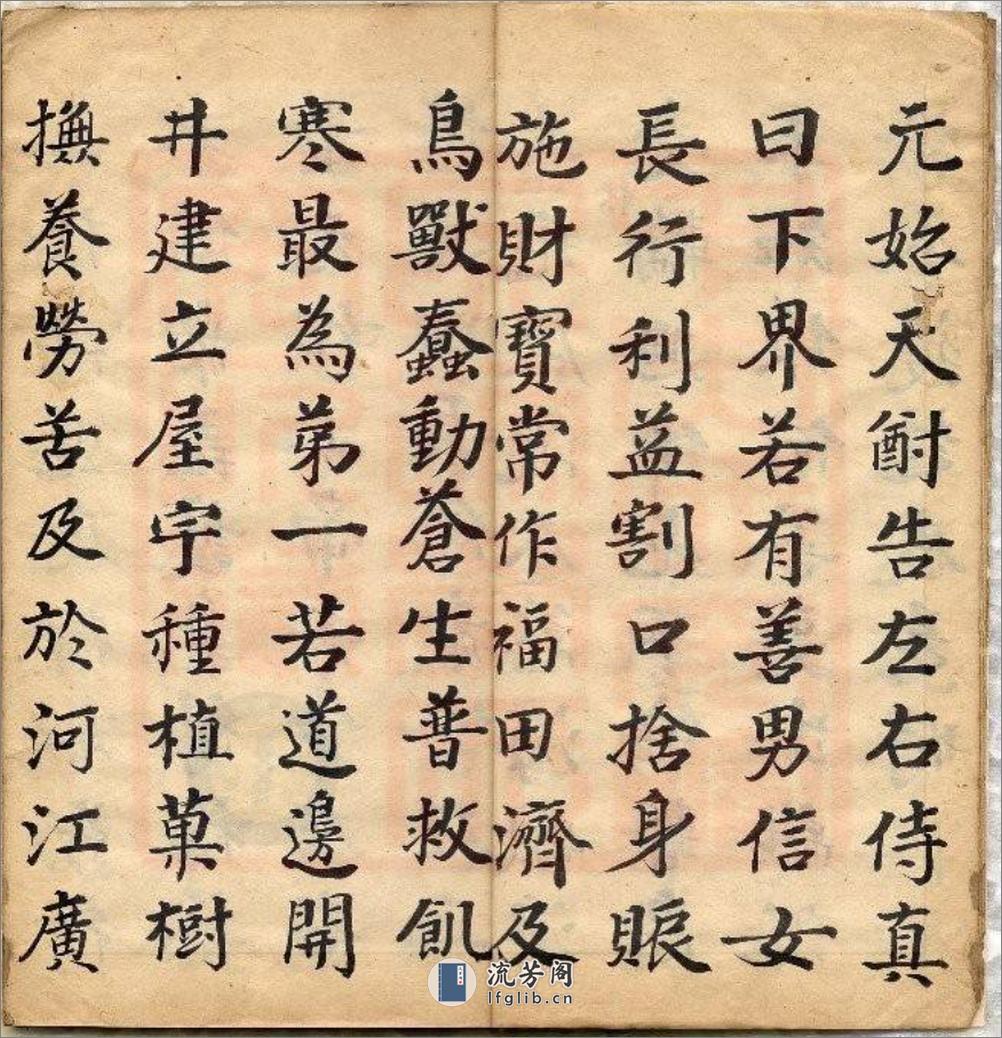 元始天尊告左右侍真
曰下界若有善男信女
長行利益割口捨身賑
施財寶常作福田濟及
鳥獸蠢動蒼生普救飢
寒最為第一若道邊開
井建立屋宇種植菓樹
撫養勞苦及於河江廣
流芳阁
lfglib.cn